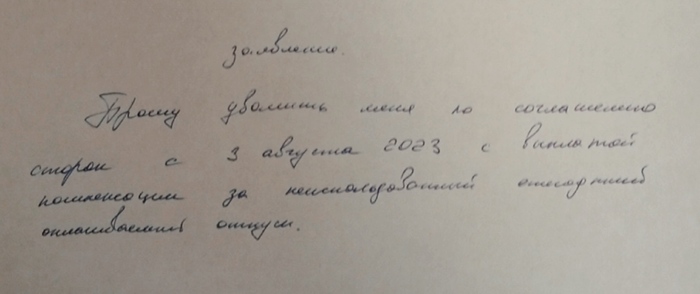 заявление.
Прошу уволить меня по соглашению
сторон с 3 августа 2023 с выплатой
компенсации за неиспользованный ежегодный
оплачиваемый отпуск.